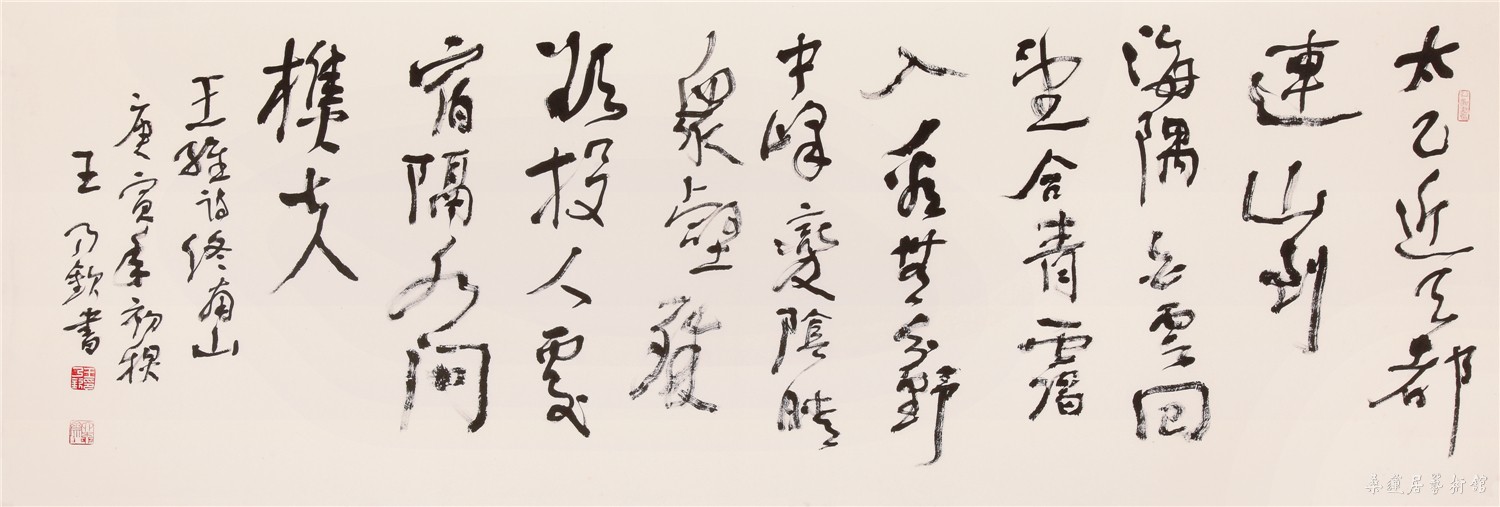 太乙近天都
連山到
海隅白雲回
望合青靄
入看無分野
中峰變陰晴
衆壑殊
欲投人處
宿隔水問
樵夫
王維詩終南山
庚寅年初秋
王乃欽書
桑蓮居藝術館